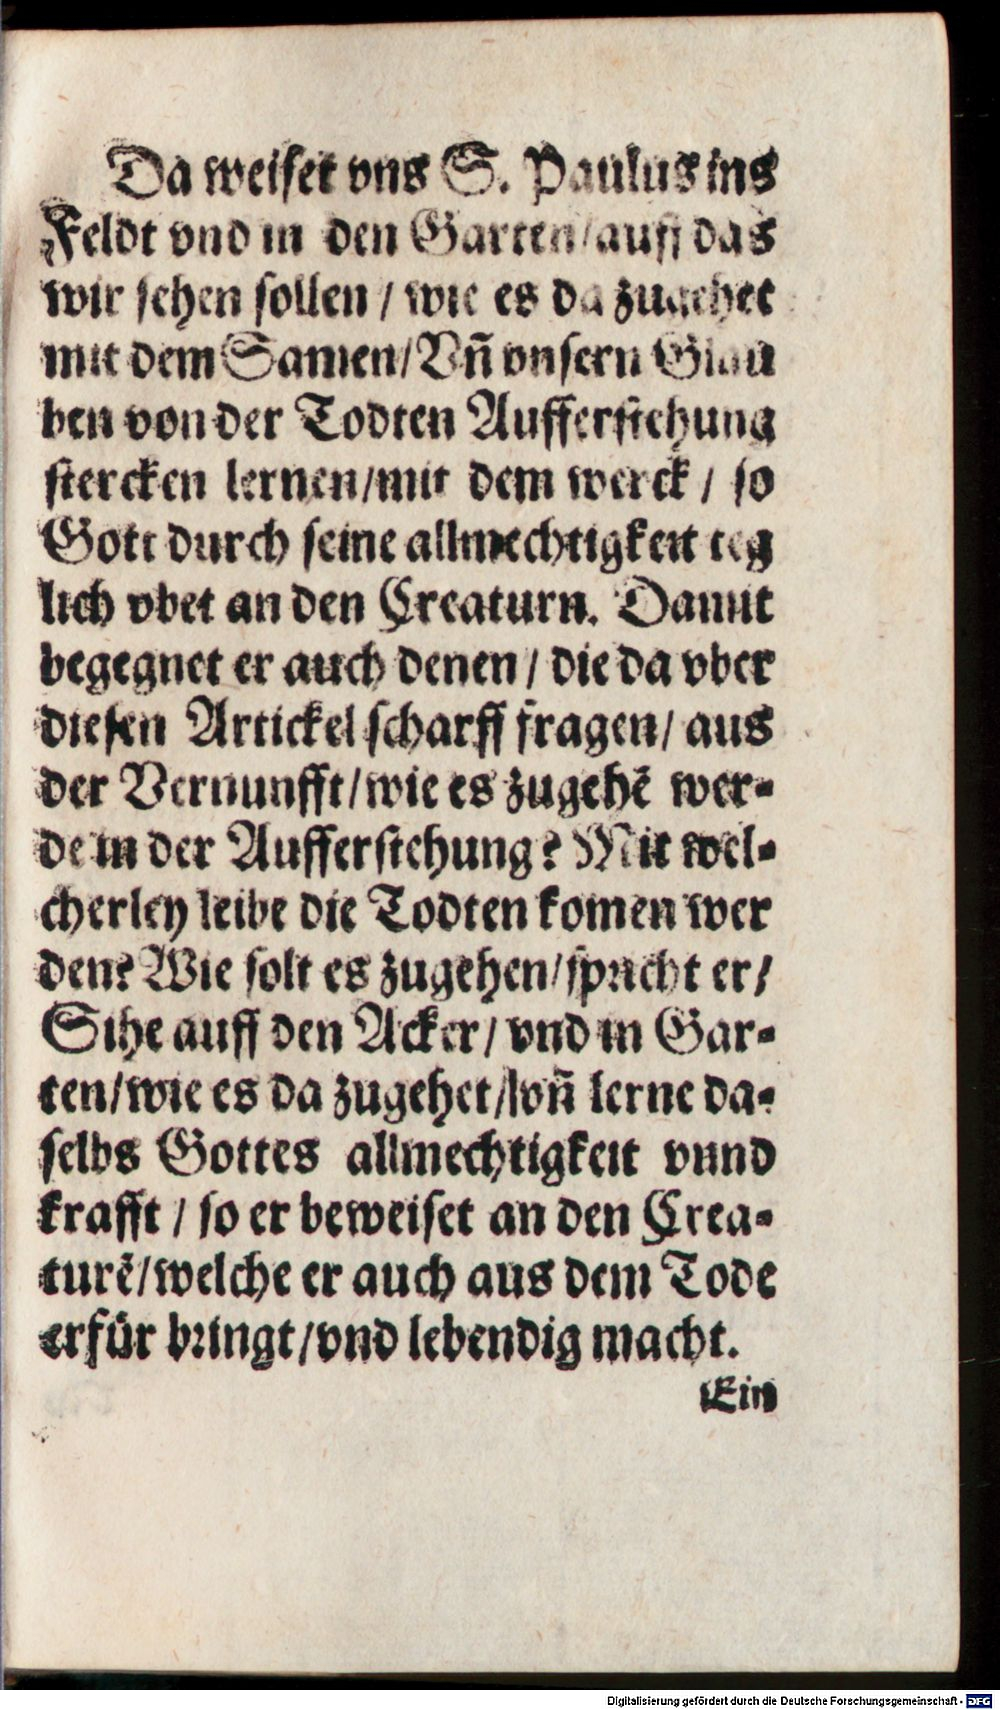 Da weiset vns S. Paulus ins
Feldt vnd in den Garten/auff das
wir sehen sollen / wie es da zugehet
mit dem Samen/Vñ vnsern Glau
ben von der Todten Aufferstehung
stercken lernen/mit dem werck / so
Gott durch seine allmechtigkeit teg
lich vbet an den Creaturn. Damit
begegnet er auch denen / die da vber
diesen Artickel scharff fragen/ aus
der Vernunfft/wie es zugehẽ wer-
de in der Aufferstehung? Mit wel-
cherley leibe die Todten komen wer
den? Wie solt es zugehen/spricht er/
Sihe auff den Acker/ vnd in Gar-
ten/wie es da zugehet/vñ lerne da-
selbs Gottes allmechtigkeit vnnd
krafft / so er beweiset an den Crea-
turẽ/welche er auch aus dem Tode
erfür bringt/vnd lebendig macht.
Ein
Digitalisierung gefördert durch die Deutsche Forschungsgemeinschaft - DFG